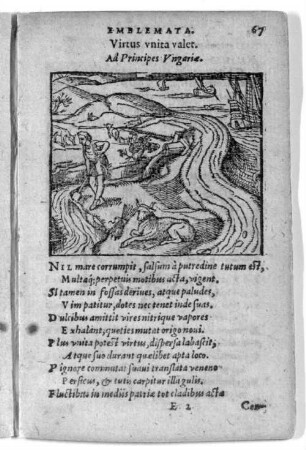 EMBLEMATA. 67
Virtus vnita valet.
Ad Principes Vngariæ.
NIL mare corrumpit, salsum à putredine tutum est,
Multaq; perpetuis motibus acta, vigent,
Si tamen in fossas deriues, atque paludes,
Vim patitur, dotes nec tenet inde suas,
Dulcibus amittit vires nitrique vapores
Exhalant, quæ ties mutat origo noui.
Plus vnita potest virtus, dispersa labascit,
Atque suo durant quælibet apta loco.
Pignore commutat suaui translata veneno
Persicus, & tutò carpitur illa gulis.
Fluctibus in mediis patriæ tot cladibus acta
E 2 Con-